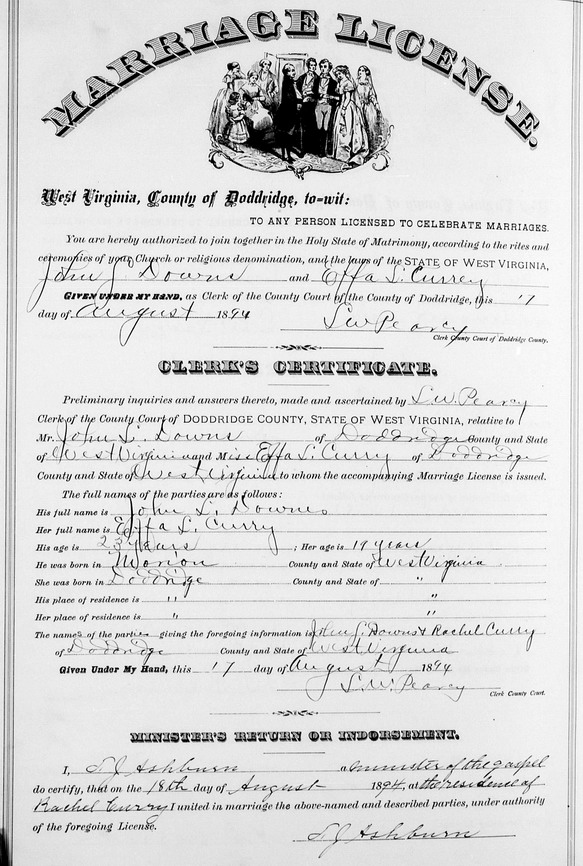 MARRIAGE LICENSE.
West Virginia, County of Doddridge, to-wit:
TO ANY PERSON LICENSED TO CELEBRATE MARRIAGES.
You are hereby authorized to join together in the Holy State of Matrimony, according to the rites and
ceremonies of your Church or religious denomination, and the laws of the STATE OF WEST VIRGINIA,
John L. Downs and Effa L. Currey
GIVEN UNDER MY HAND, as Clerk of the County Court of the County of Doddridge, this 17
day of August 1894
L. W. Pearcy
Clerk County Court of Doddridge County.
CLERK'S CERTIFICATE.
Preliminary inquiries and answers thereto, made and ascertained by L. W. Pearcy
Clerk of the County Court of DODDRIDGE COUNTY, STATE OF WEST VIRGINIA, relative to
Mr. John L. Downs of Doddridge County and State
of West Virginia and Miss Effa L. Curry of Doddridge
County and State of West Virginia to whom the accompanying Marriage License is issued.
The full names of the parties are as follows:
His full name is John L. Downs
Her full name is Effa L. Curry
His age is 23 years ; Her age is 19 years
He was born in Marion County and State of West Virginia
She was born in Doddridge County and State of "
His place of residence is " "
Her place of residence is " "
The names of the parties giving the foregoing information is John L. Downs & Rachel Curry
of Doddridge County and State of West Virginia
Given Under My Hand, this 17 day of August 1894
L. W. Pearcy
Clerk County Court.
MINISTER'S RETURN OR INDORSEMENT.
I, T J Ashburn a minister of the gospel
do certify, that on the 19th day of August 1894, at the residence of
Rachel Curry I united in marriage the above-named and described parties, under authority
of the foregoing License.
T J Ashburn